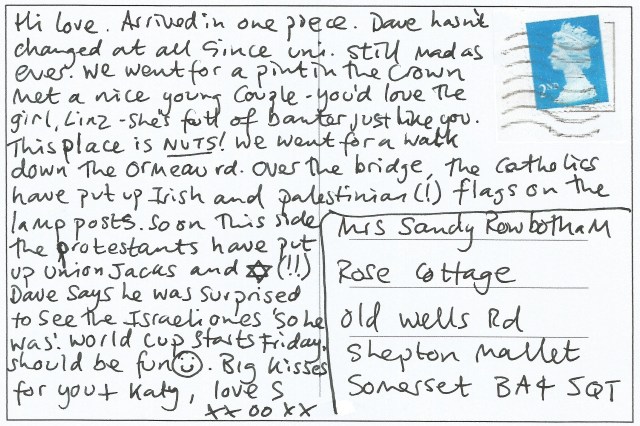 Hi love. Arrived in one piece. Dave hasn't
changed at all since uni. Still mad as
ever. We went for a pint in the Crown
met a nice young couple - you'd love the
girl, Linz - she's full of banter just like you.
This place is NUTS! We went for a walk
down the Ormeau rd. Over the bridge, the Catholics
have put up Irish and palestinian (!) flags on the
lamp posts. So on this side
the protestants have put
up union Jacks and ✡ (!!)
Dave says he was surprised
to see the Israeli ones 'so he
was'. World cup starts Friday.
should be fun ☺. Big kisses
for you + Katy, love S
xx oo xx
2ND
Mrs Sandy Rowbotham
Rose Cottage
Old Wells Rd
Shepton Mallet
Somerset BA4 5QT